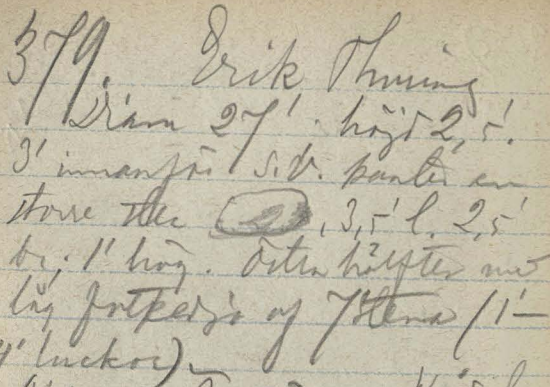 379. Erik Thuning
Diam 27'. höjd 2,5'.
3' innanför s.v. kanten en
större sten, 3,5' l. 2,5'
br; 1' hög. Östra hälften med
låg fotkedja af 7 stenar (1'-
4' luckor).